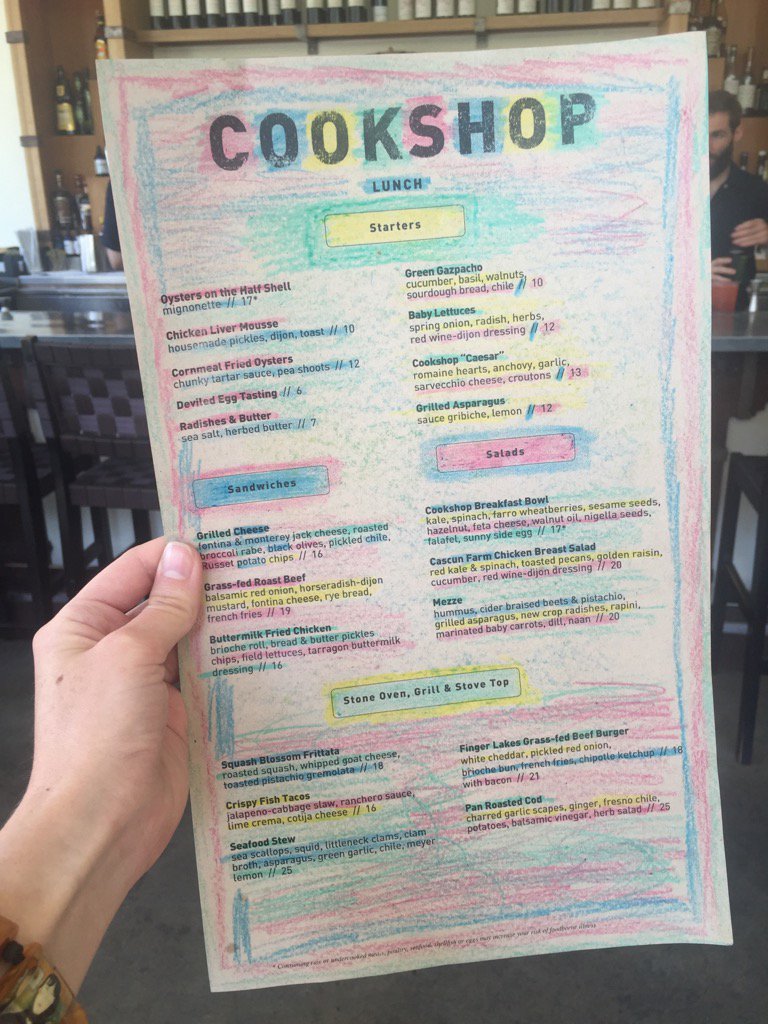 COOKSHOP
LUNCH
Starters
Oysters on the Half Shell
mignonette // 17*
Chicken Liver Mousse
housemade pickles, dijon, toast // 10
Cornmeal Fried Oysters
chunky tartar sauce, pea shoots // 12
Deviled Egg Tasting // 6
Radishes & Butter
sea salt, herbed butter // 7
Green Gazpacho
cucumber, basil, walnuts,
sourdough bread, chile // 10
Baby Lettuces
spring onion, radish, herbs,
red wine-dijon dressing // 12
Cookshop "Caesar"
romaine hearts, anchovy, garlic,
sarvecchio cheese, croutons // 13
Grilled Asparagus
sauce gribiche, lemon // 12
Sandwiches
Grilled Cheese
fontina & monterey jack cheese, roasted
broccoli rabe, black olives, pickled chile,
Russet potato chips // 16
Grass-fed Roast Beef
balsamic red onion, horseradish-dijon
mustard, fontina cheese, rye bread,
french fries // 19
Buttermilk Fried Chicken
brioche roll, bread & butter pickles
chips, field lettuces, tarragon buttermilk
dressing // 16
Salads
Cookshop Breakfast Bowl
kale, spinach, farro wheatberries, sesame seeds,
hazelnut, feta cheese, walnut oil, nigella seeds,
falafel, sunny side egg // 17*
Cascun Farm Chicken Breast Salad
red kale & spinach, toasted pecans, golden raisin,
cucumber, red wine-dijon dressing // 20
Mezze
hummus, cider braised beets & pistachio,
grilled asparagus, new crop radishes, rapini,
marinated baby carrots, dill, naan // 20
Stone Oven, Grill & Stove Top
Squash Blossom Frittata
roasted squash, whipped goat cheese,
toasted pistachio gremolata // 18
Crispy Fish Tacos
jalapeno-cabbage slaw, ranchero sauce,
lime crema, cotija cheese // 16
Seafood Stew
sea scallops, squid, littleneck clams, clam
broth, asparagus, green garlic, chile, meyer
lemon // 25
Finger Lakes Grass-fed Beef Burger
white cheddar, pickled red onion,
brioche bun, french fries, chipotle ketchup // 18
with bacon // 21
Pan Roasted Cod
charred garlic scapes, ginger, fresno chile,
potatoes, balsamic vinegar, herb salad // 25
* Consuming raw or undercooked meats, poultry, seafood, shellfish or eggs may increase your risk of foodborne illness